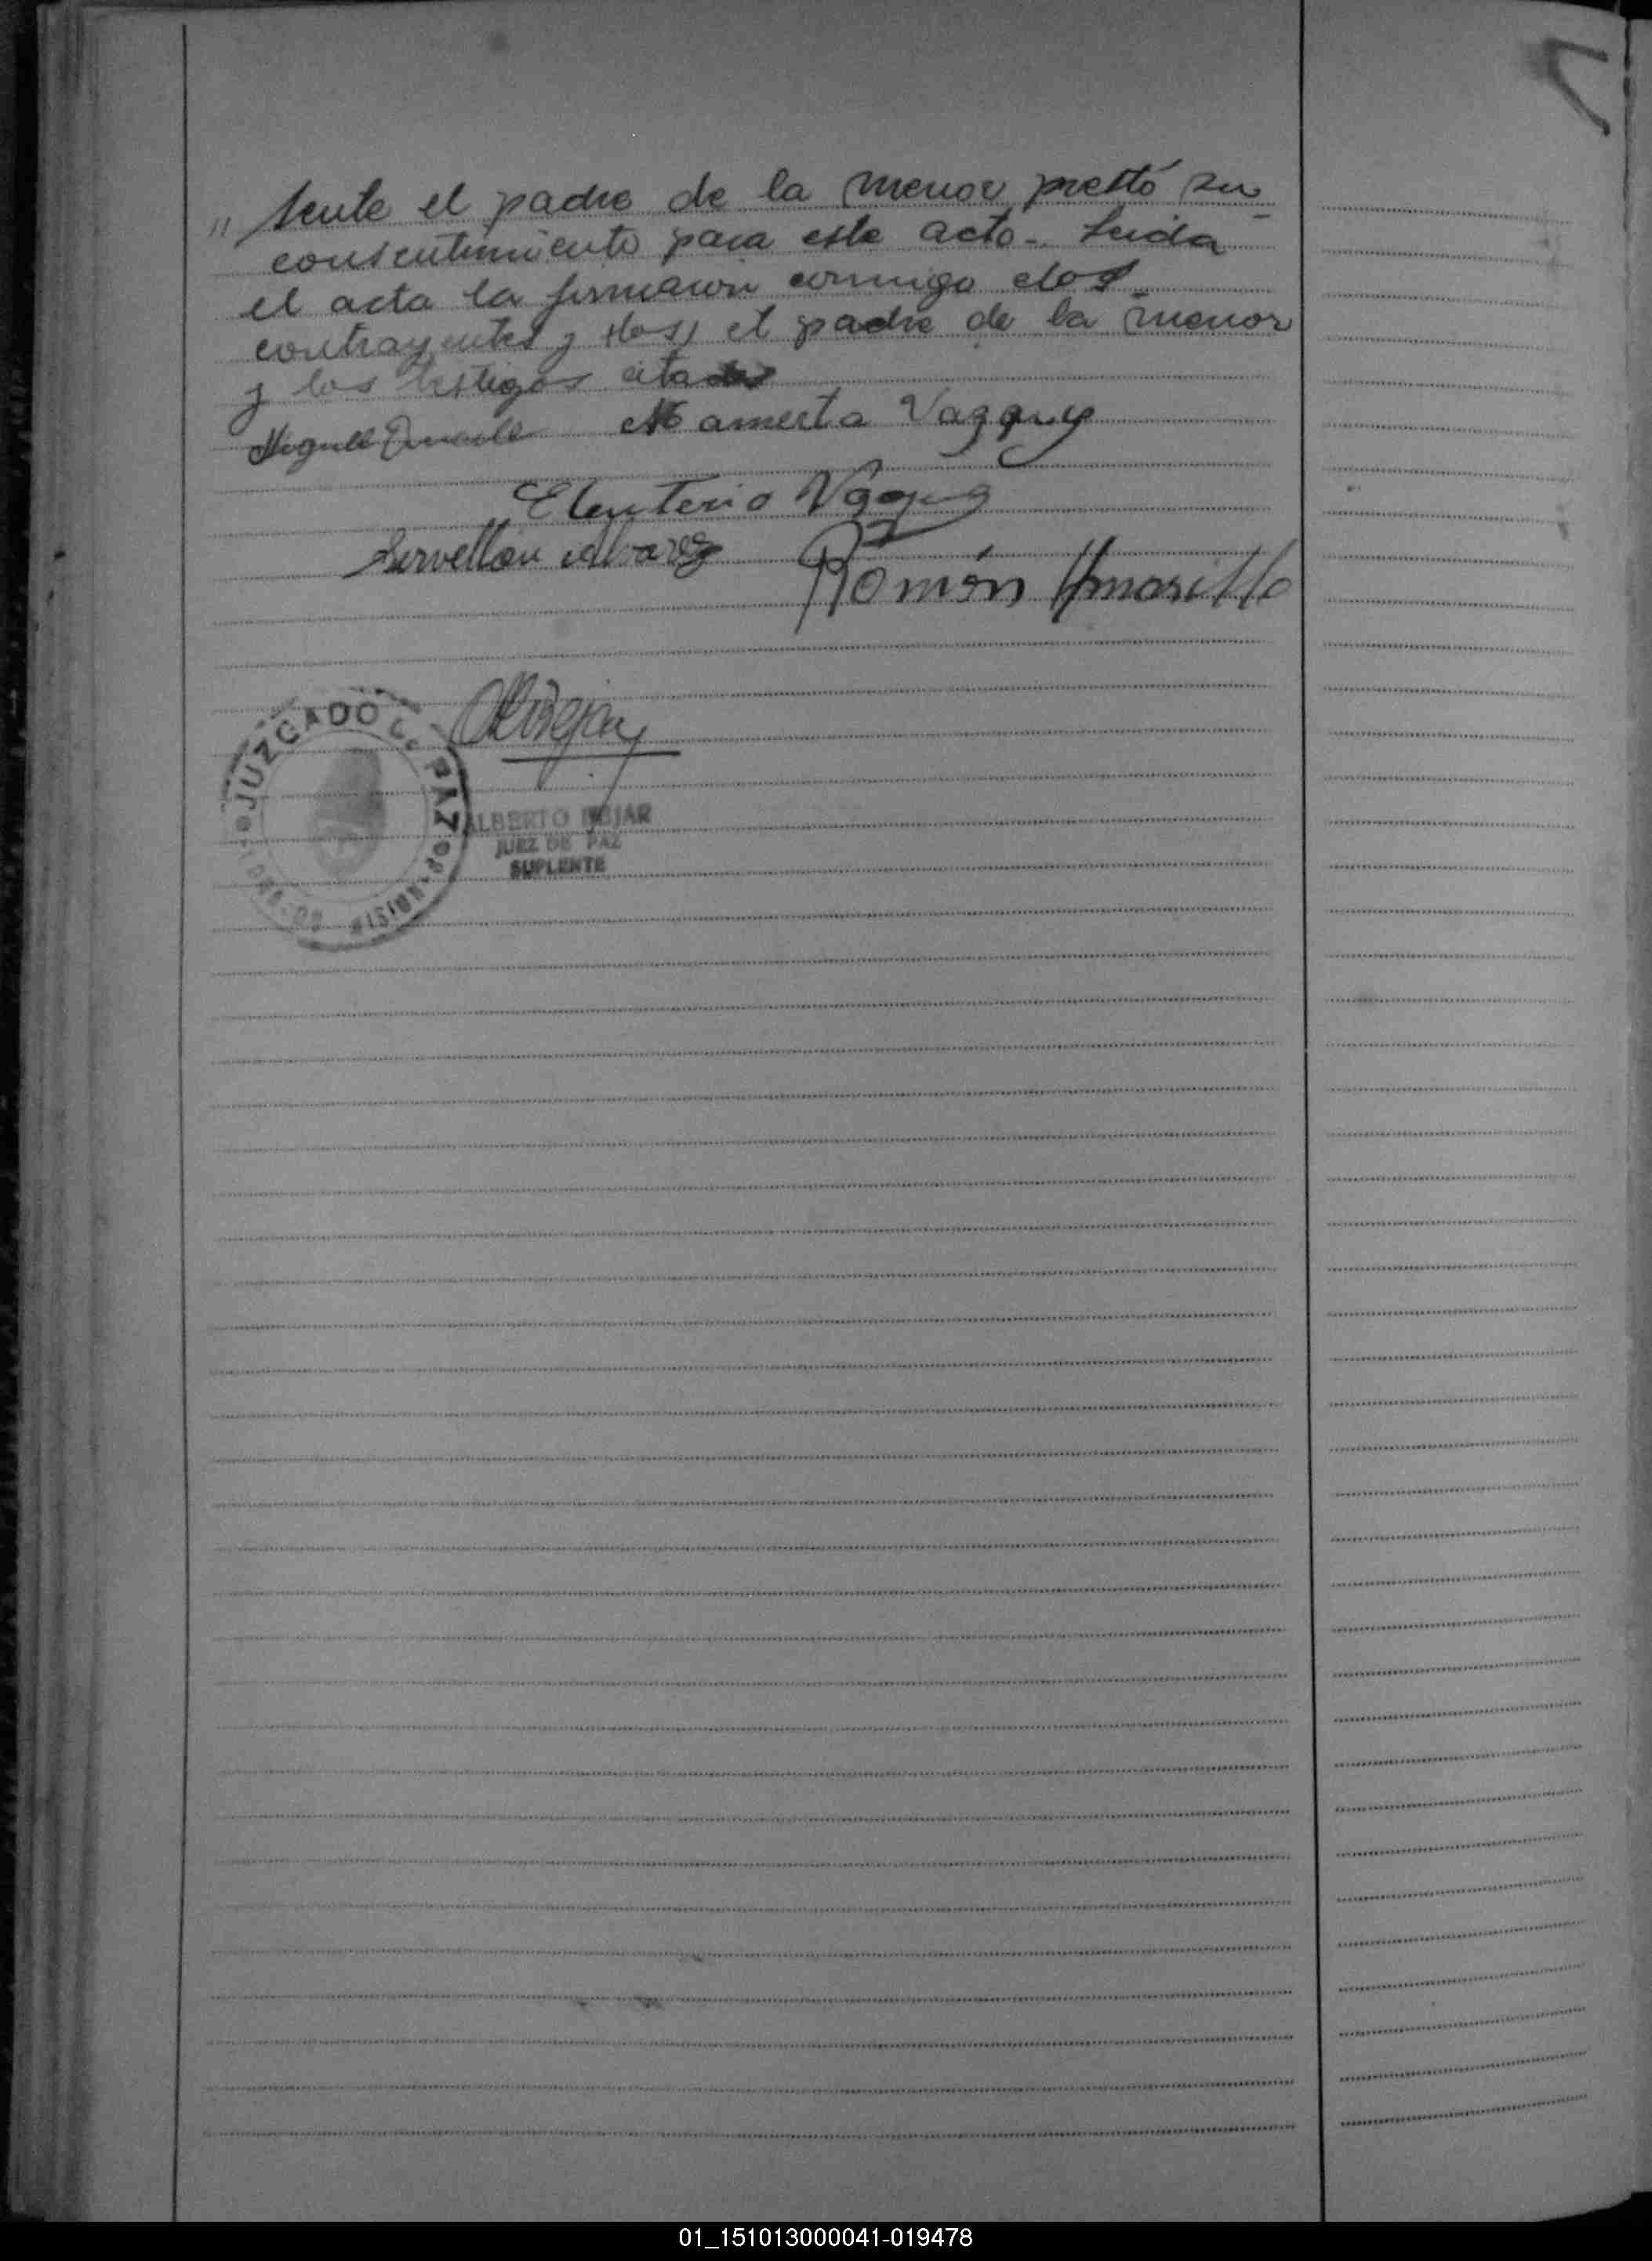 " sente el padre de la menor prestó su
consentimiento para este acto - Leida
el acta la firmaron conmigo los
contrayentes y (los) el padre de la menor
y los testigos citados
Mamerta Vazquez
Eleuterio Vazquez
Servellon Alvarez Román Amarilla
JUZGADO de PAZ
ALBERTO BEJAR
JUEZ DE PAZ
SUPLENTE
01_151013000041-019478